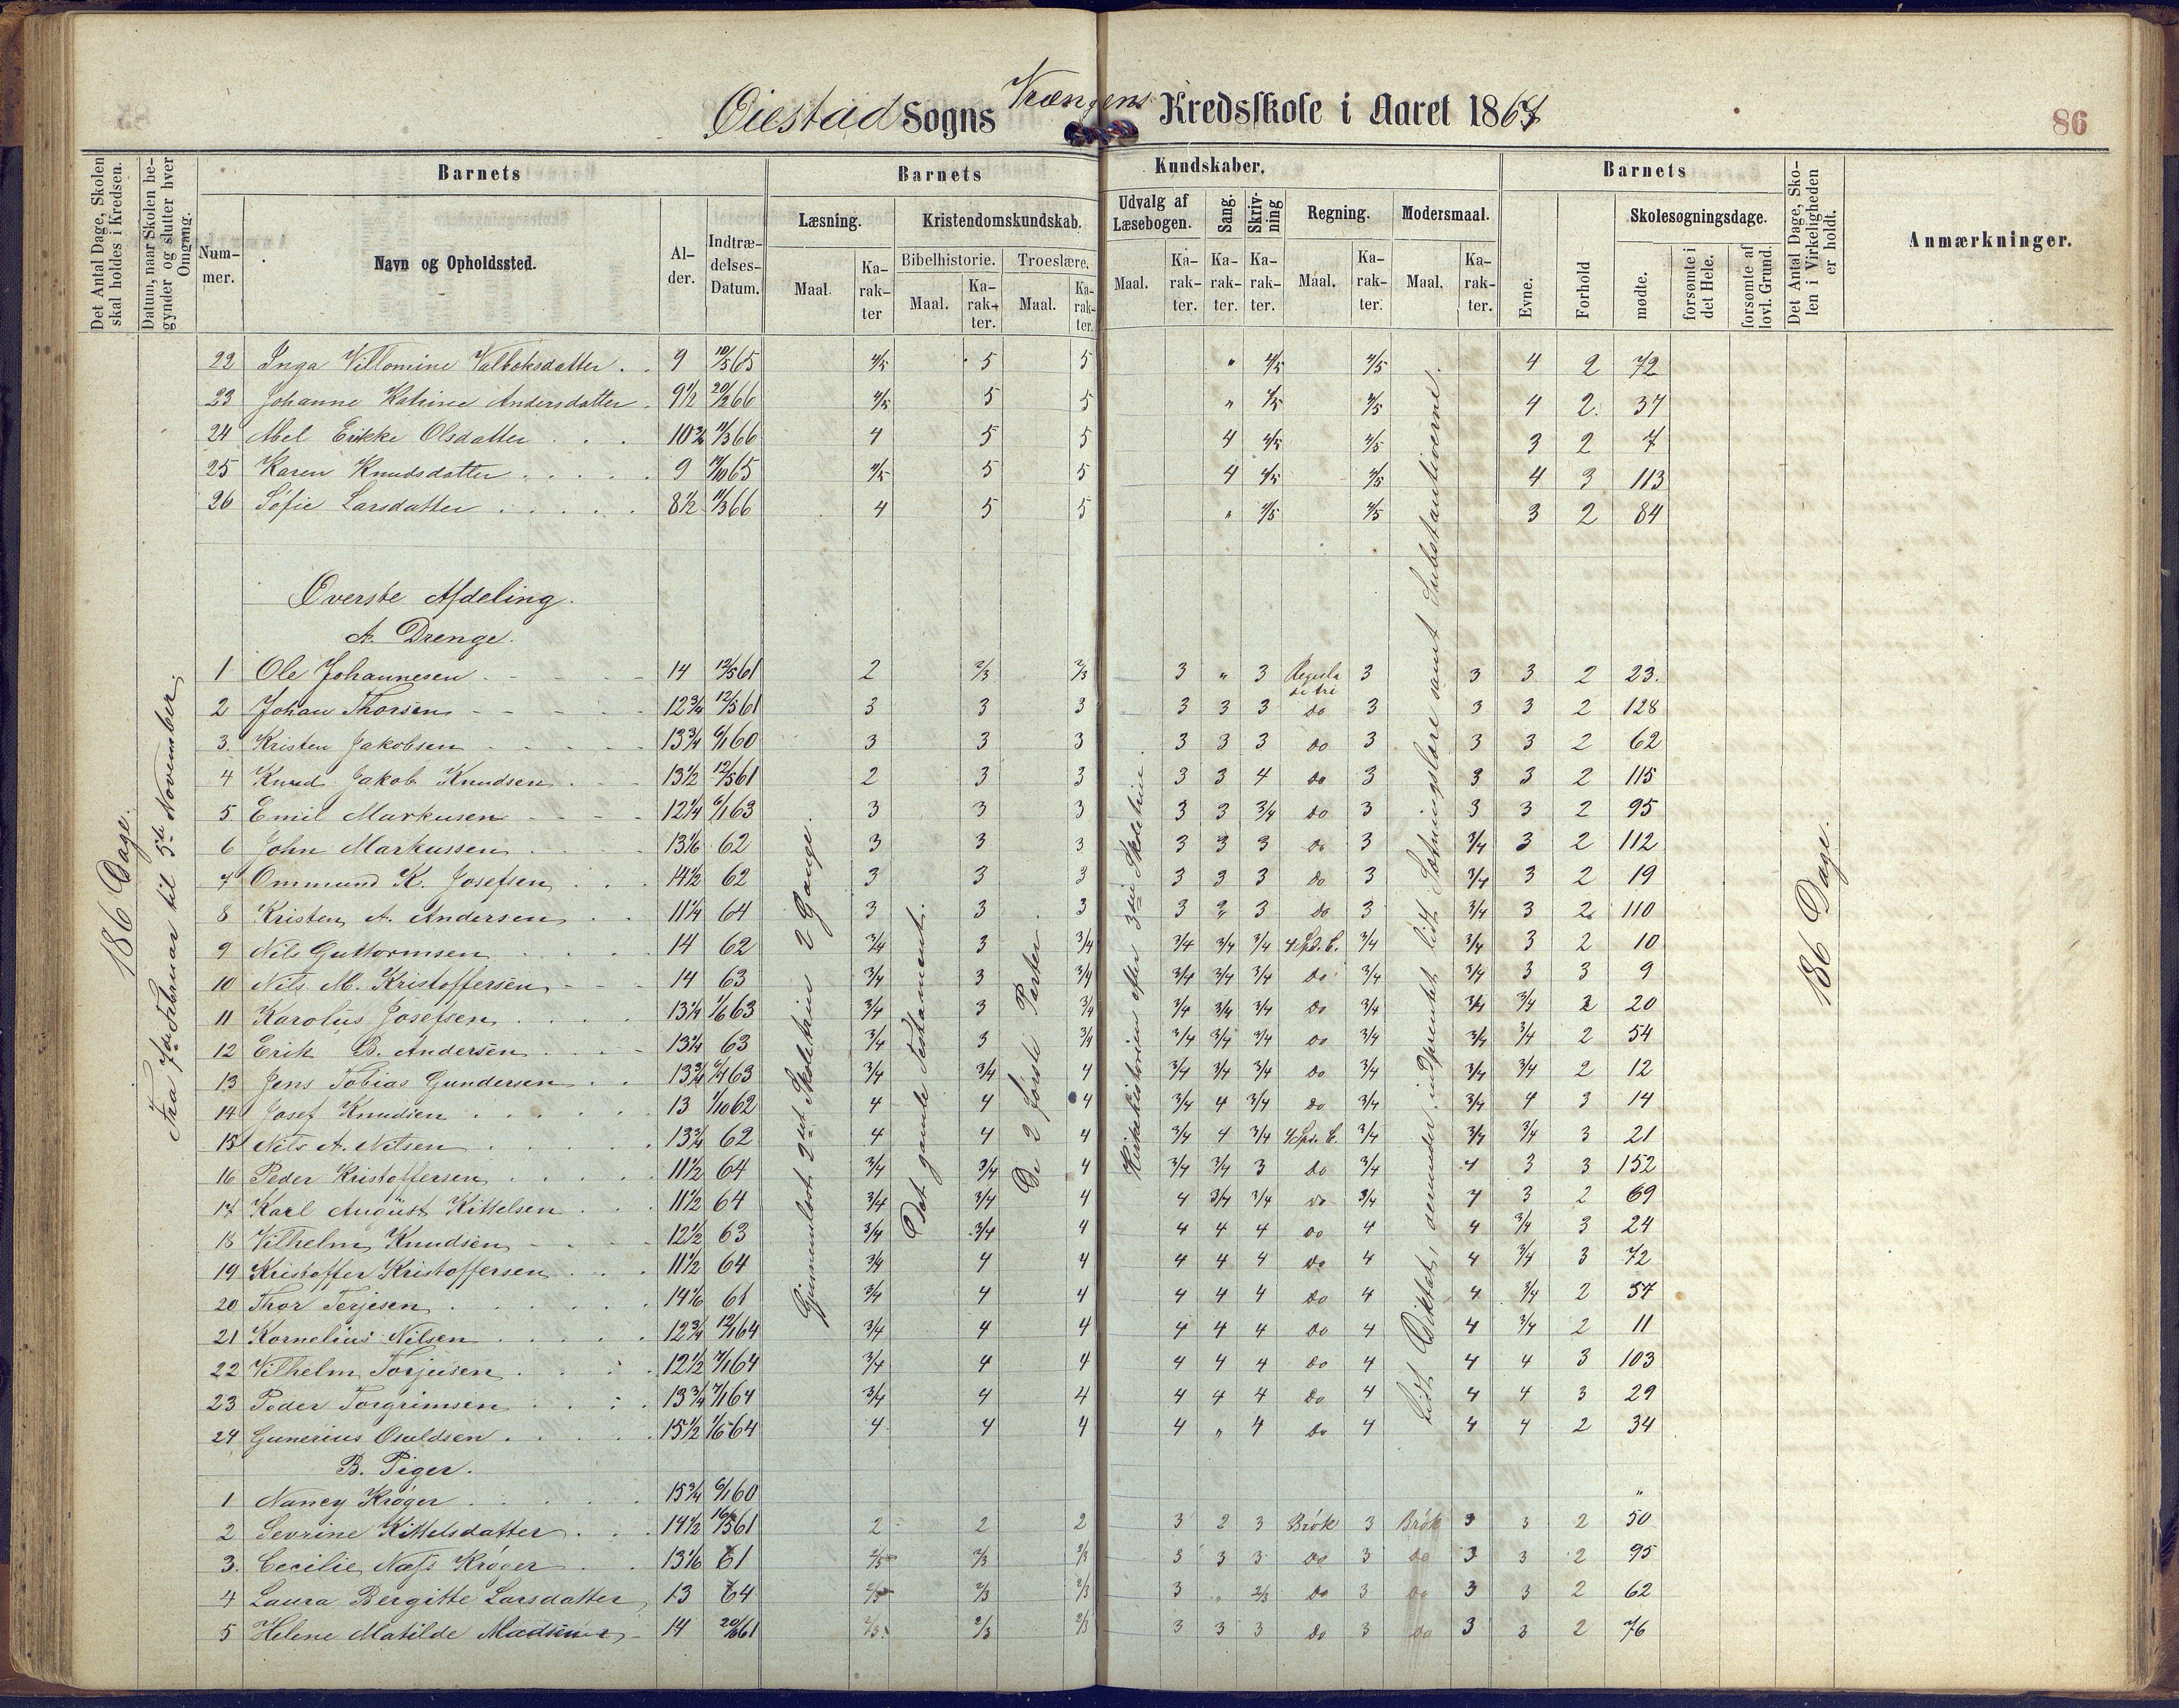 Øiestad Sogns Vrængens Kredsskole i Aaret 1867
86
Det Antal Dage, Skolen skal holdes i Kredsen.
Datum, naar Skolen begynder og slutter hver Omgang.
Barnets
Nummer.
Navn og Opholdssted.
Alder.
Indtrædelses-Datum.
Barnets Kundskaber.
Læsning.
Maal.
Karakter
Kristendomskundskab.
Bibelhistorie.
Maal.
Karakter.
Troeslære.
Maal.
Karakter.
Udvalg af Læsebogen.
Maal.
Karakter.
Sang.
Karakter.
Skrivning
Karakter.
Regning.
Maal.
Karakter.
Modersmaal.
Maal.
Karakter.
Barnets
Evne.
Forhold
Skolesøgningsdage.
mødte.
forsømte i det Hele.
forsømte af lovl. Grund.
Det Antal Dage, Skolen i Virkeligheden er holdt.
Anmærkninger.
186 Dage.
Fra 7de Februar til 5te November.
Gjennemløbet 2det Skoletrin 2 Gange.
Det gamle Testamente.
De 2 første Parter
Kirkehistorien efter 3die Skoletrin.
Lidt Diktat, derunder indprentet lidt Sætningslære samt Substantiverne.
186 Dage.
22 Inga Villomine Valboksdatter 9 10/5 65 4/5 5 5 " 4/5 4/5 4 2 72
23 Johanne Katrine Andersdatter 9 1/2 20/2 66 4/5 5 5 " 4/5 4/5 4 2 37
24 Abel Erikke Olsdatter 10 3/4 11/3 66 4 5 5 4 4/5 4/5 3 2 7
25 Karen Knudsdatter 9 17/10 65 4/5 5 5 4 4/5 4/5 4 3 113
26 Sofie Larsdatter 8 1/2 11/3 66 4 5 5 " 4/5 4/5 3 2 84
Øverste Afdeling.
A. Drenge.
1 Ole Johannesen 14 12/5 61 2 2/3 2/3 3 " 3 Regula de tri 3 3 3 2 23.
2 Johan Thorsen 12 3/4 12/5 61 3 3 3 3 3 3 do 3 3 3 2 128
3. Kristen Jakobsen 13 3/4 6/1 60 3 3 3 3 3 3 do 3 3 3 2 62
4 Knud Jakob Knudsen 13 1/2 12/5 61 2 3 3 3 3 4 do 3 3 3 2 115
5 Emil Markusen 12 1/4 6/1 63 3 3 3 3 3 3/4 do 3 3 3 2 95
6 John Markussen 13 1/6 62 3 3 3 3 3 3 do 3 3/4 3 2 112
7 Ommund K. Josefsen 14 1/2 62 3 3 3 3 3 3 do 3 3/4 3 2 19
8 Kristen A. Andersen 11 1/4 64 3 3 3 3 " 3 do 3 3/4 3 2 110
9 Nils Guttormsen 14 62 3/4 3 3/4 3/4 3/4 3/4 4 Spd. C. 3/4 3/4 3 2 10
10 Nils M. Kristoffersen 14 63 3/4 3 3/4 3/4 3/4 3/4 do 3/4 3/4 3 3 9
11 Karolus Josefsen 13 1/4 1/6 63 3/4 3 3/4 3/4 3/4 3/4 do 3/4 3/4 3/4 2 20
12 Erik B. Andersen 13 1/4 63 3/4 3 3/4 3/4 3/4 3/4 do 3/4 3/4 3/4 2 54
13 Jens Tobias Gundersen 13 3/4 6/4 63 3/4 3/4 4 3/4 3/4 3/4 do 3/4 3/4 3/4 2 12
14 Josef Knudsen 13 1/10 62 4 4 4 3/4 4 3/4 do 3/4 3/4 4 3 14
15 Nils A. Nilsen 13 3/4 62 4 4 4 3/4 4 3/4 4 Spd. C. 3/4 3/4 3/4 3 21
16 Peder Kristoffersen 11 1/2 64 3/4 3/4 4 3/4 3/4 3 do 3/4 4 3 3 152
17 Karl August Kittelsen 11 1/2 64 3/4 3/4 4 4 3/4 3/4 do 3/4 4 3 2 69
18 Vilhelm Knudsen 12 1/2 63 3/4 3/4 4 4 4 4 do 4 4 3/4 3 24
19 Kristoffer Kristoffersen 11 1/2 64 3/4 4 4 4 4 4 do 4 4 3/4 3 72
20 Thor Terjesen 14 1/6 61 3/4 4 4 4 4 4 do 4 4 3/4 2 57
21 Kornelius Nilsen 12 3/4 12/1 64 3/4 4 4 4 4 4 do 4 4 3/4 2 11
22 Vilhelm Torjusen 12 1/2 7/1 64 3/4 4 4 4 4 4 do 4 4 4 3 103
23 Peder Torgrimsen 13 3/4 7/1 64 3/4 4 4 4 4 4 do 4 4 4 3 29
24 Gunerius Osuldsen 15 1/2 1/6 64 4 4 4 4 " 4 do 4 4 4 2 34
B. Piger.
1 Nancy Krøger 15 3/4 6/1 60 "
2 Sevrine Kittelsdatter 14 1/2 16/5 61 2 2 2 3 2 3 Brøk 3 Brøk 3 3 2 50
3. Cecilie Næss Krøger 13 1/6 61 2/3 2/3 2/3 3 3 3 do 3 do 3 3 2 95
4 Laura Bergitte Larsdatter 13 64 2/3 2/3 2/3 3 " 2/3 do 3 do 3 3 2 62
5 Helene Matilde Madsen 14 20/6 61 2/3 2/3 2/3 3 3 3 do 3 do 3 3 2 76